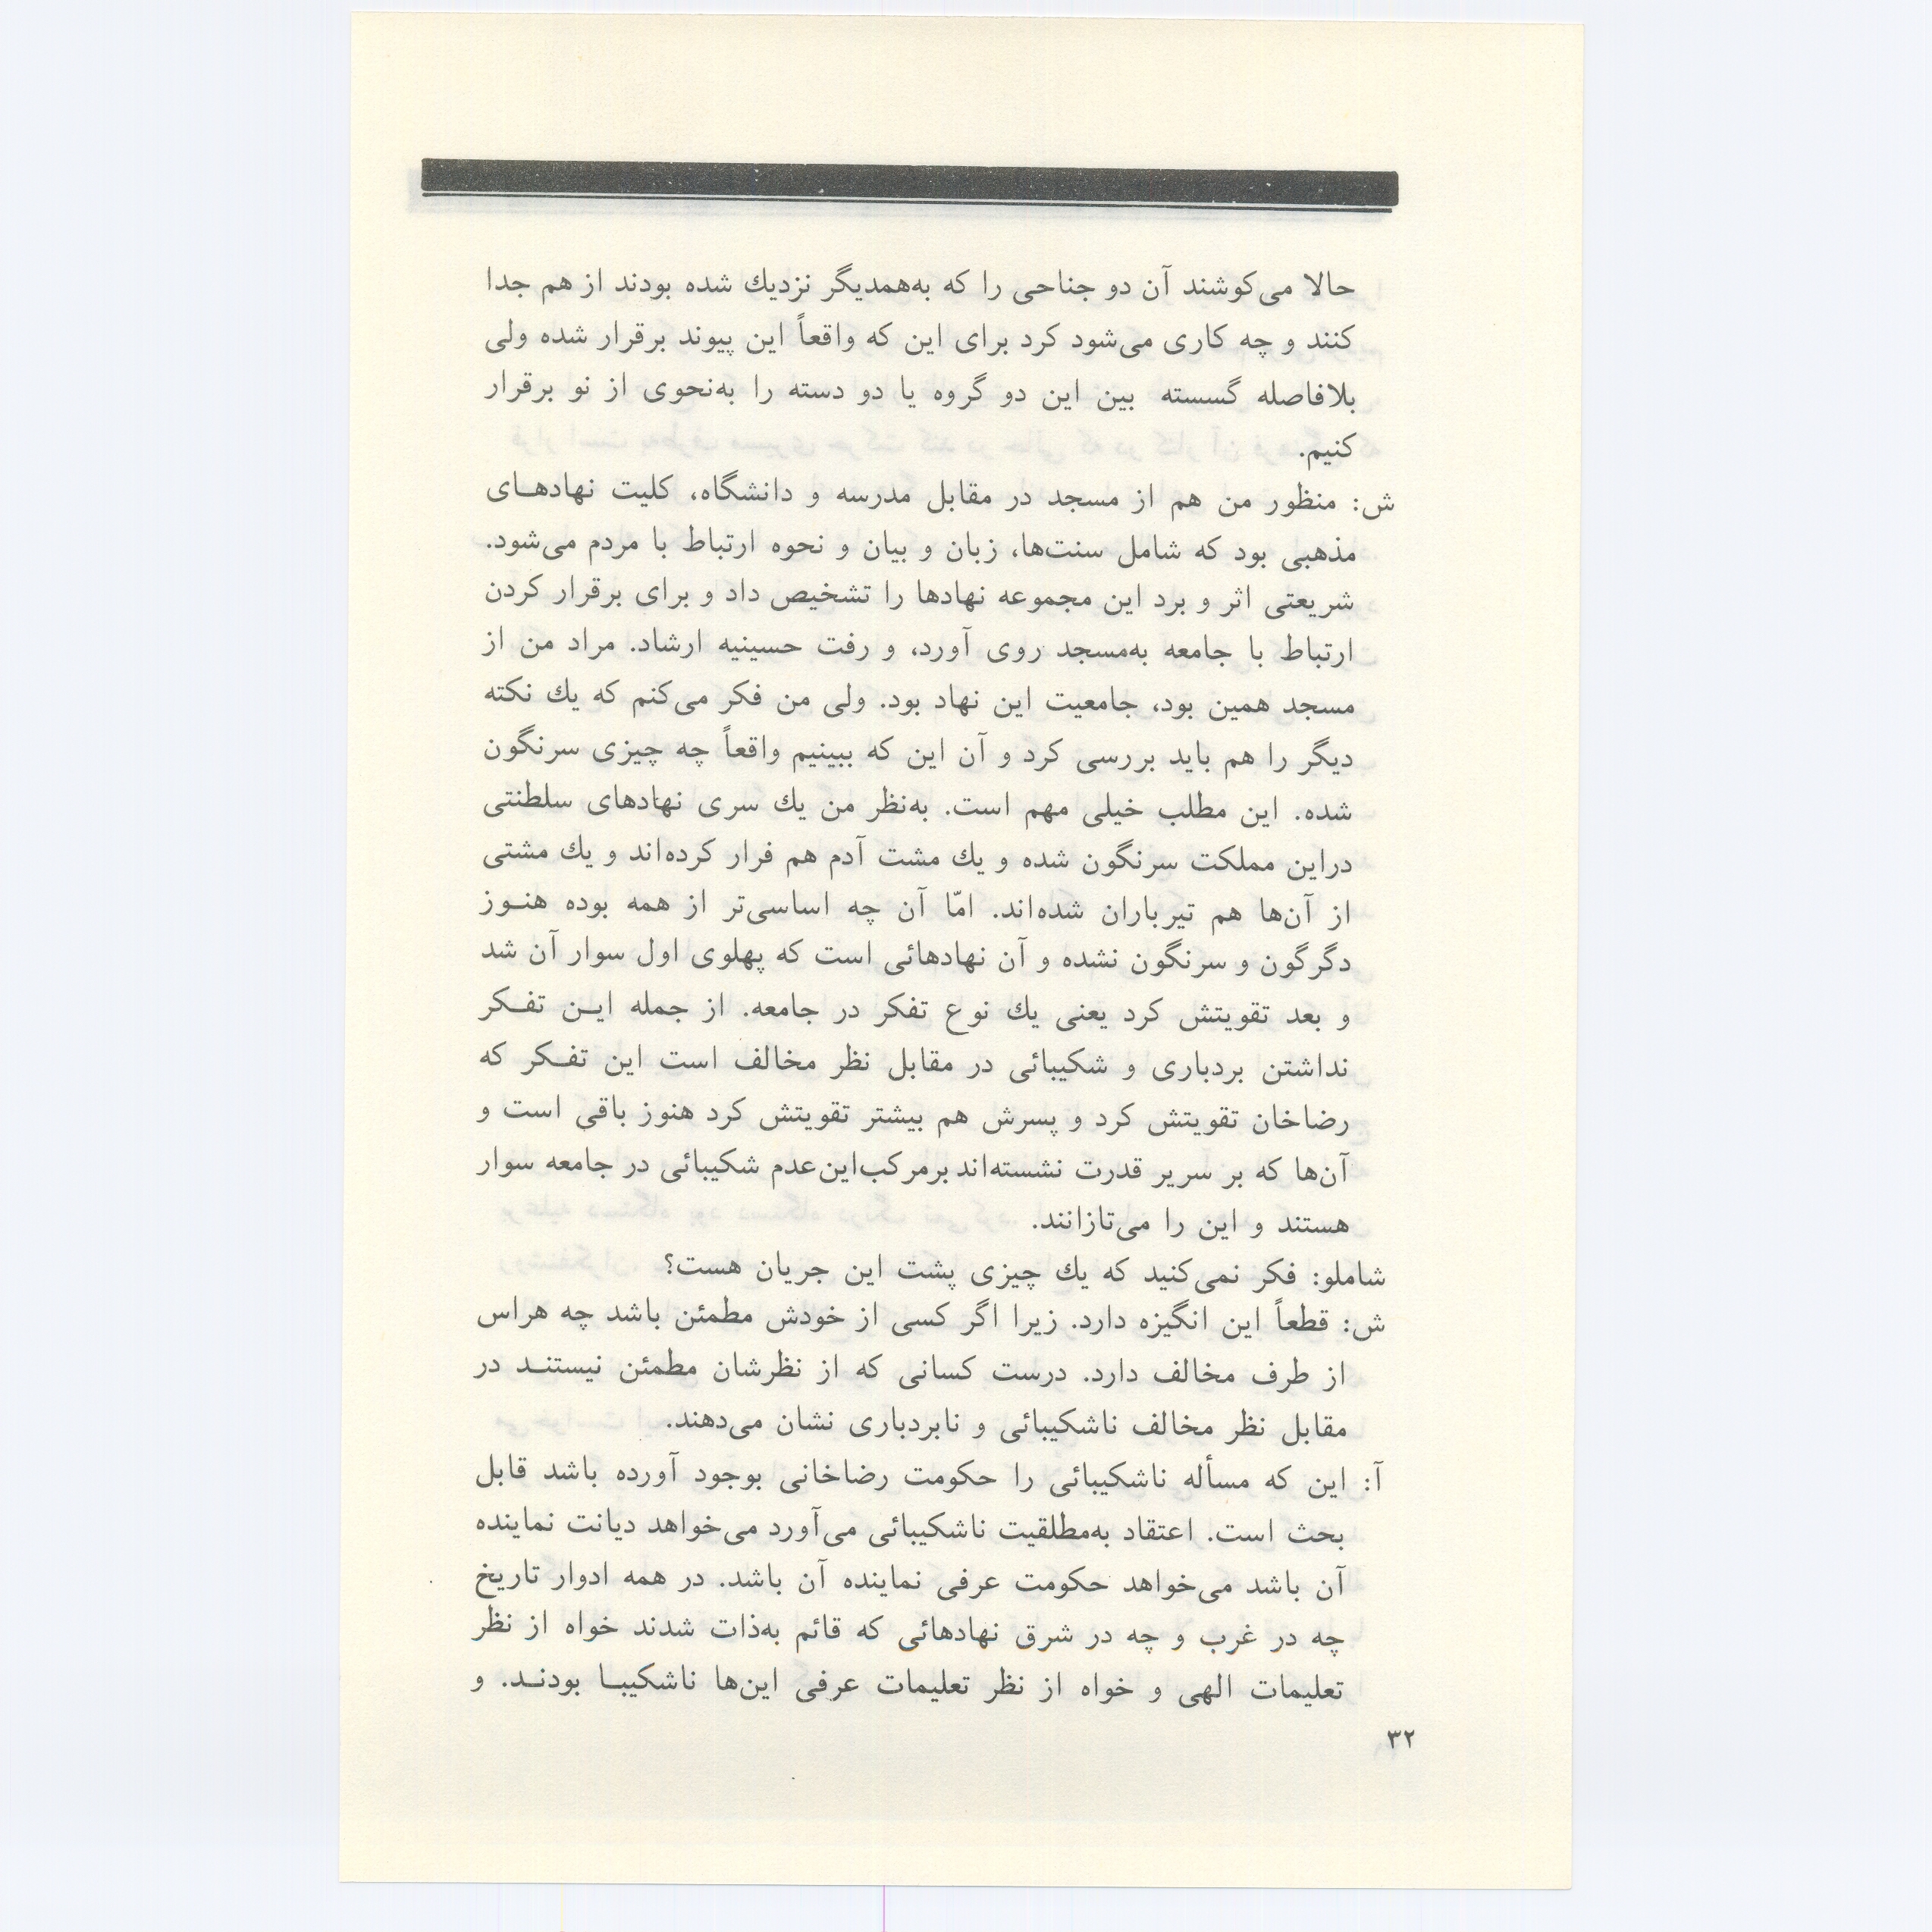 حالا می‌کوشند آن دو جناحی را که به‌همدیگر نزدیك شده بودند از هم جدا
کنند و چه کاری می‌شود کرد برای این که واقعاً این پیوند برقرار شده ولی
بلافاصله گسسته بین این دو گروه یا دو دسته را به‌نحوی از نو برقرار
کنیم.
ش: منظور من هم از مسجد در مقابل مدرسه و دانشگاه، کلیت نهادهـای
مذهبی بود که شامل سنت‌ها، زبان و بیان و نحوه ارتباط با مردم می‌شود.
شریعتی اثر و برد این مجموعه نهادها را تشخیص داد و برای برقرار کردن
ارتباط با جامعه به‌مسجد روی آورد، و رفت حسینیه ارشاد. مراد من از
مسجد همین بود، جامعیت این نهاد بود. ولی من فکر می‌کنم که یك نکته
دیگر را هم باید بررسی کرد و آن این که ببینیم واقعاً چه چیزی سرنگون
شده. این مطلب خیلی مهم است. به‌نظر من یك سری نهادهای سلطنتی
دراین مملکت سرنگون شده و یك مشت آدم هم فرار کرده‌اند و یك مشتی
از آن‌ها هم تیرباران شده‌اند. امّا آن چه اساسی‌تر از همه بوده هنـوز
دگرگون و سرنگون نشده و آن نهادهائی است که پهلوی اول سوار آن شد
و بعد تقویتش کرد یعنی یك نوع تفکر در جامعه. از جمله ایـن تفـکر
نداشتن بردباری و شکیبائی در مقابل نظر مخالف است این تفـکر که
رضاخان تقویتش کرد و پسرش هم بیشتر تقویتش کرد هنوز باقی است و
آن‌ها که بر سریر قدرت نشسته‌اند برمرکب‌این‌عدم شکیبائی در جامعه سوار
هستند و این را می‌تازانند.
شاملو: فکر نمی‌کنید که یك چیزی پشت این جریان هست؟
ش: قطعاً این انگیزه دارد. زیرا اگر کسی از خودش مطمئن باشد چه هراس
از طرف مخالف دارد. درست کسانی که از نظرشان مطمئن نیستنـد در
مقابل نظر مخالف ناشکیبائی و نابردباری نشان می‌دهند.
آ: این که مسأله ناشکیبائی را حکومت رضاخانی بوجود آورده باشد قابل
بحث است. اعتقاد به‌مطلقیت ناشکیبائی می‌آورد می‌خواهد دیانت نماینده
آن باشد می‌خواهد حکومت عرفی نماینده آن باشد. در همه ادوار تاریخ
چه در غرب و چه در شرق نهادهائی که قائم به‌ذات شدند خواه از نظر
تعلیمات الهی و خواه از نظر تعلیمات عرفی این‌ها ناشکیبـا بودنـد. و
۳۲